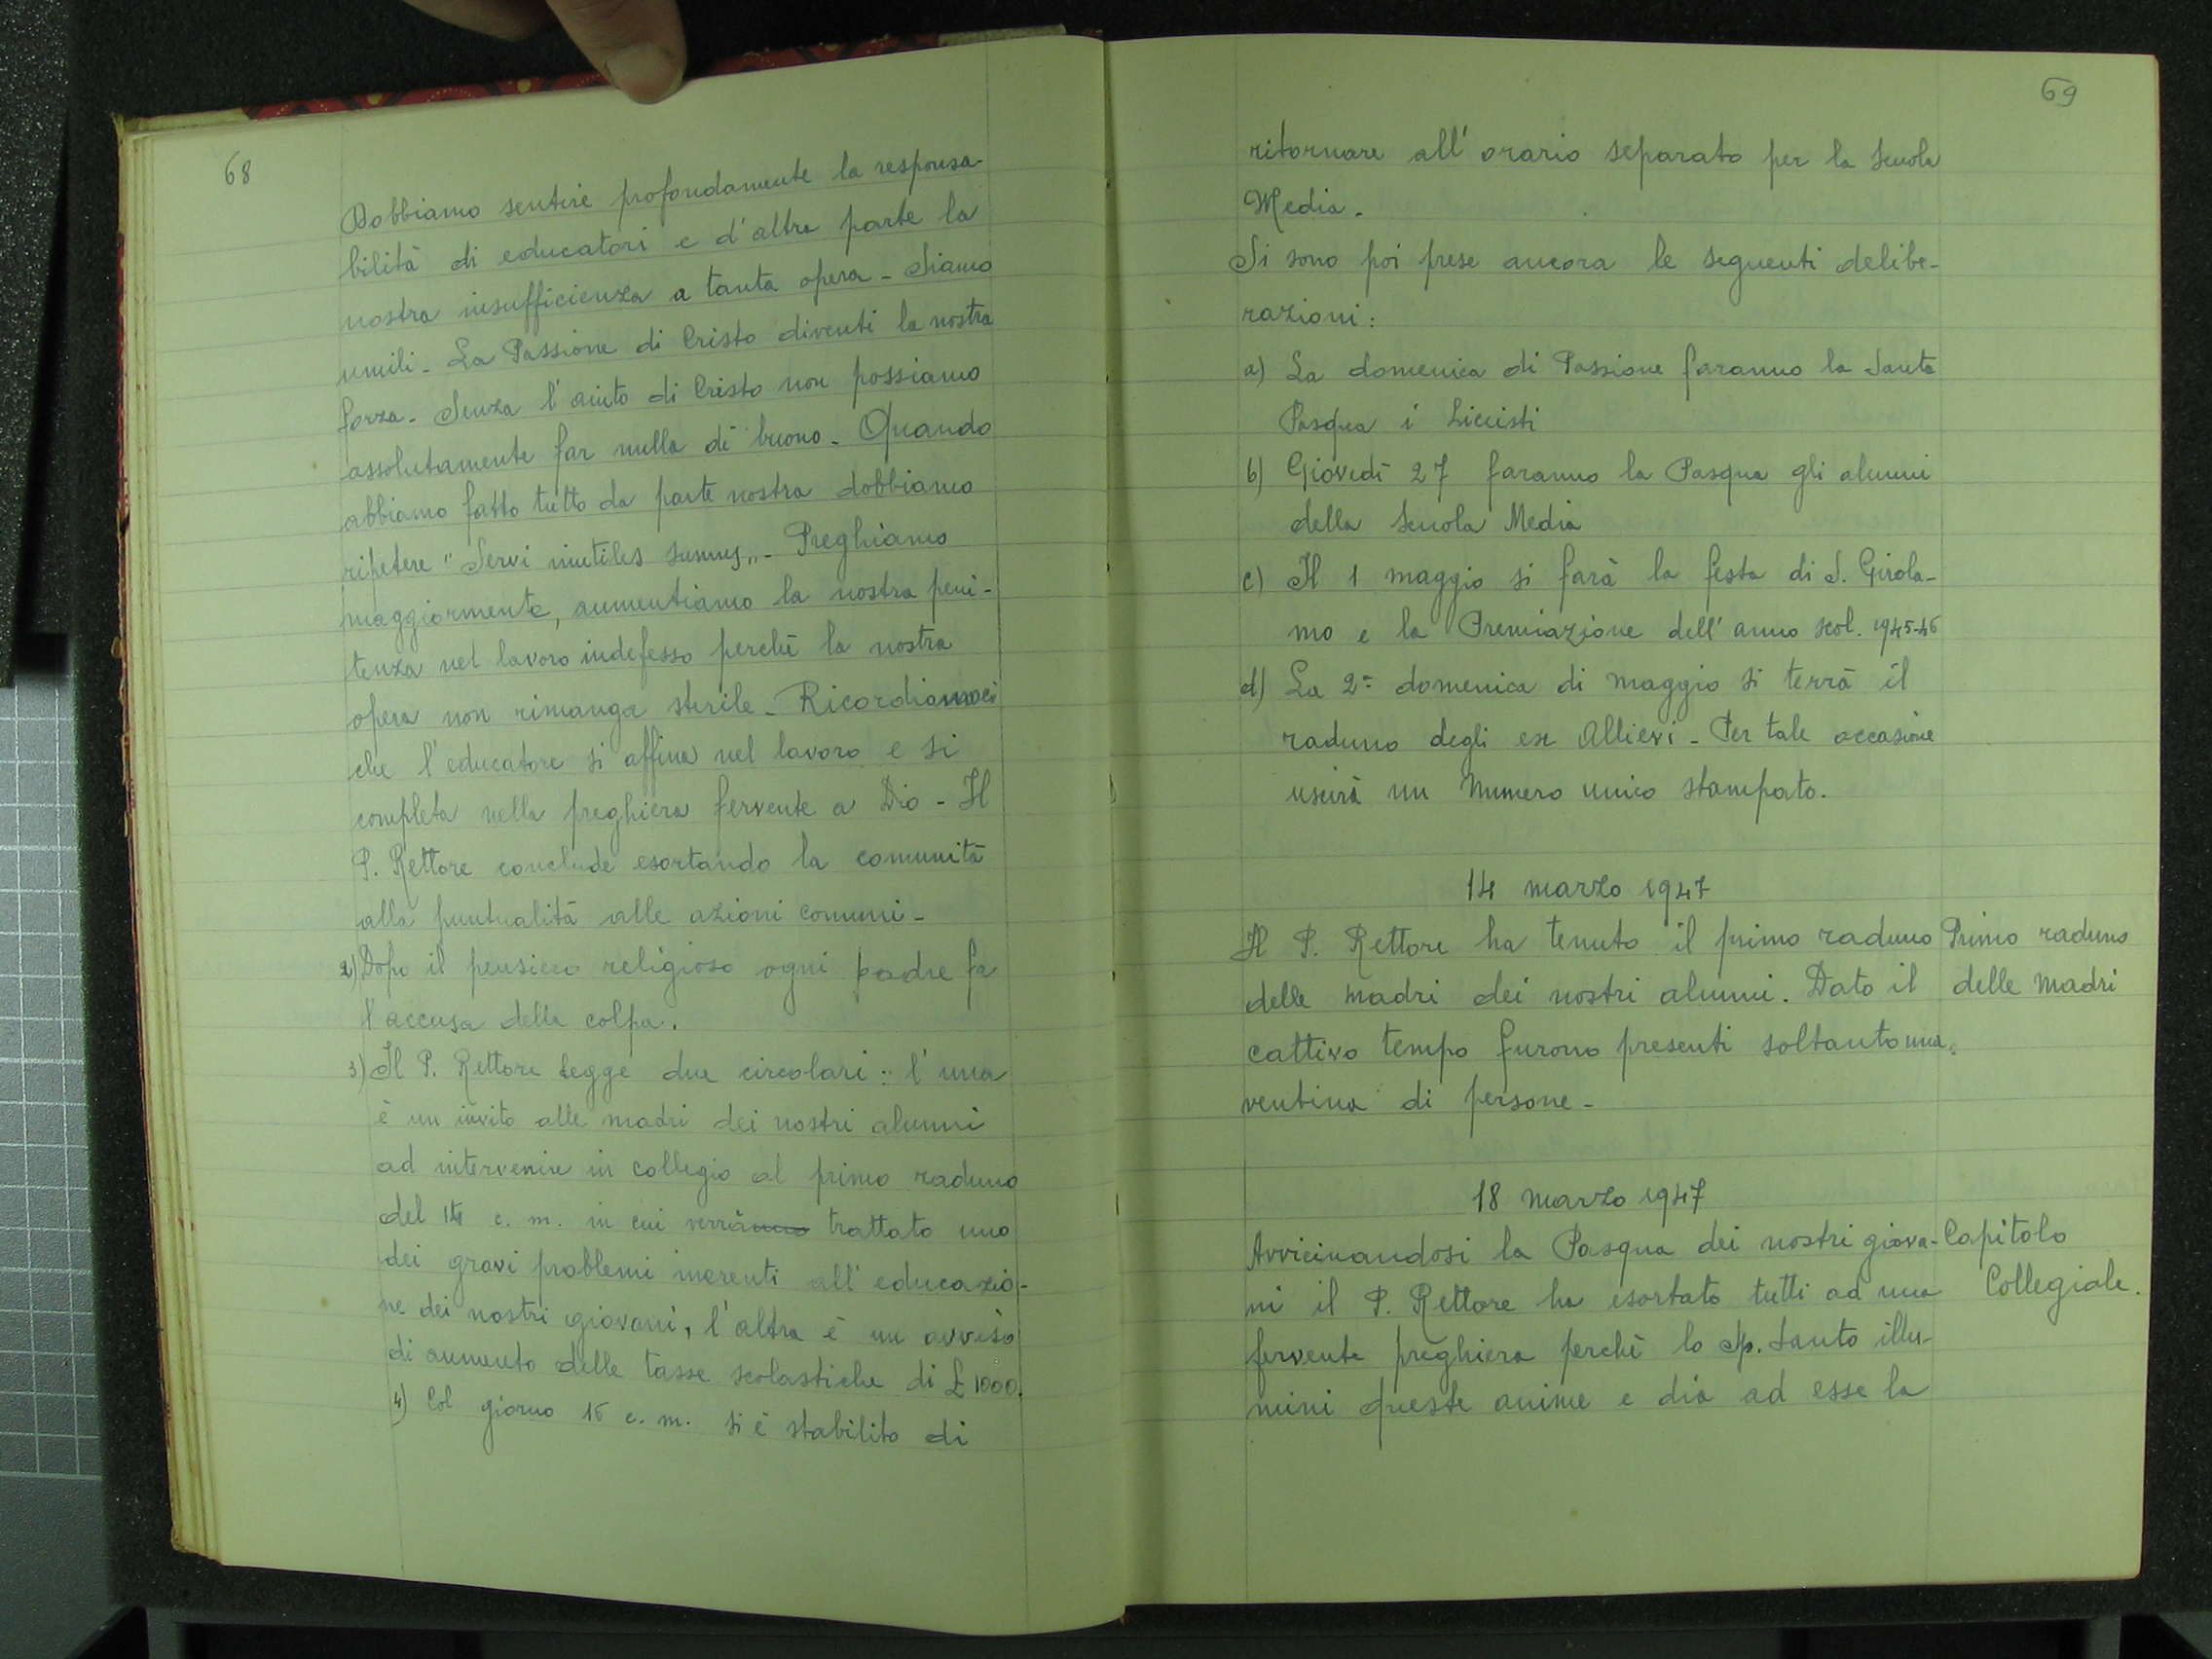 68
Dobbiamo sentire profondamente la responsa-
bilità di educatori e d'altra parte la
nostra insufficienza a tanta opera - Siamo
umili - La Passione di Cristo diventi la nostra
forza - Senza l'aiuto di Cristo non possiamo
assolutamente far nulla di buono - Quando
abbiamo fatto tutto da parte nostra dobbiamo
ripetere " Servi inutiles sumus „ - Preghiamo
maggiormente, aumentiamo la nostra peni-
tenza nel lavoro indefesso perchè la nostra
opera non rimanga sterile - Ricordiamoci
che l'educatore si affina nel lavoro e si
completa nella preghiera fervente a Dio - Il
P. Rettore conclude esortando la comunità
alla puntualità alle azioni comuni -
2) Dopo il pensiero religioso ogni padre fa
l'accusa della colpa.
3) Il P. Rettore legge due circolari : l'una
è un invito alle madri dei nostri alunni
ad intervenire in collegio al primo raduno
del 14 c. m. in cui verrà trattato uno
dei gravi problemi inerenti all'educazio-
ne dei nostri giovani, l'altra è un avviso
di aumento delle tasse scolastiche di £ 1000.
4) Col giorno 16 c. m. si è stabilito di
69
ritornare all'orario separato per la Scuola
Media -
Si sono poi prese ancora le seguenti delibe-
razioni :
a) La domenica di Passione faranno la Santa
Pasqua i Liceisti
b) Giovedì 27 faranno la Pasqua gli alunni
della Scuola Media
c) Il 1 maggio si farà la festa di S. Girola-
mo e la Premiazione dell'anno scol. 1945-46
d) La 2ª domenica di maggio si terrà il
raduno degli ex Allievi - Per tale occasione
uscirà un Numero unico stampato.
14 marzo 1947
Il P. Rettore ha tenuto il primo raduno
delle madri dei nostri alunni. Dato il
cattivo tempo furono presenti soltanto una
ventina di persone -
Primo raduno
delle Madri
18 marzo 1947
Avvicinandosi la Pasqua dei nostri giova-
ni il P. Rettore ha esortato tutti ad una
fervente preghiera perchè lo Sp. Santo illu-
mini queste anime e dia ad esse la
Capitolo
Collegiale.